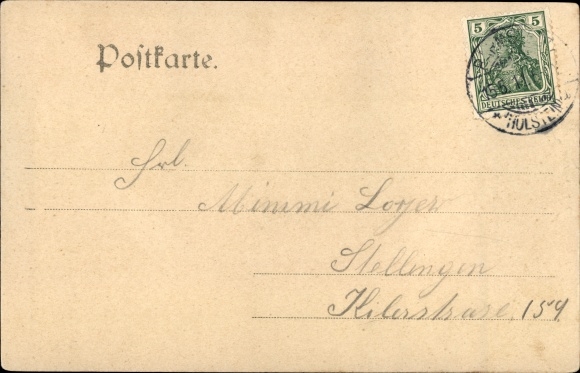 Postkarte.
5 5
DEUTSCHES REICH
HOLSTEIN
Frl.
Mimmi
Stellingen
Kilerstrase, 159